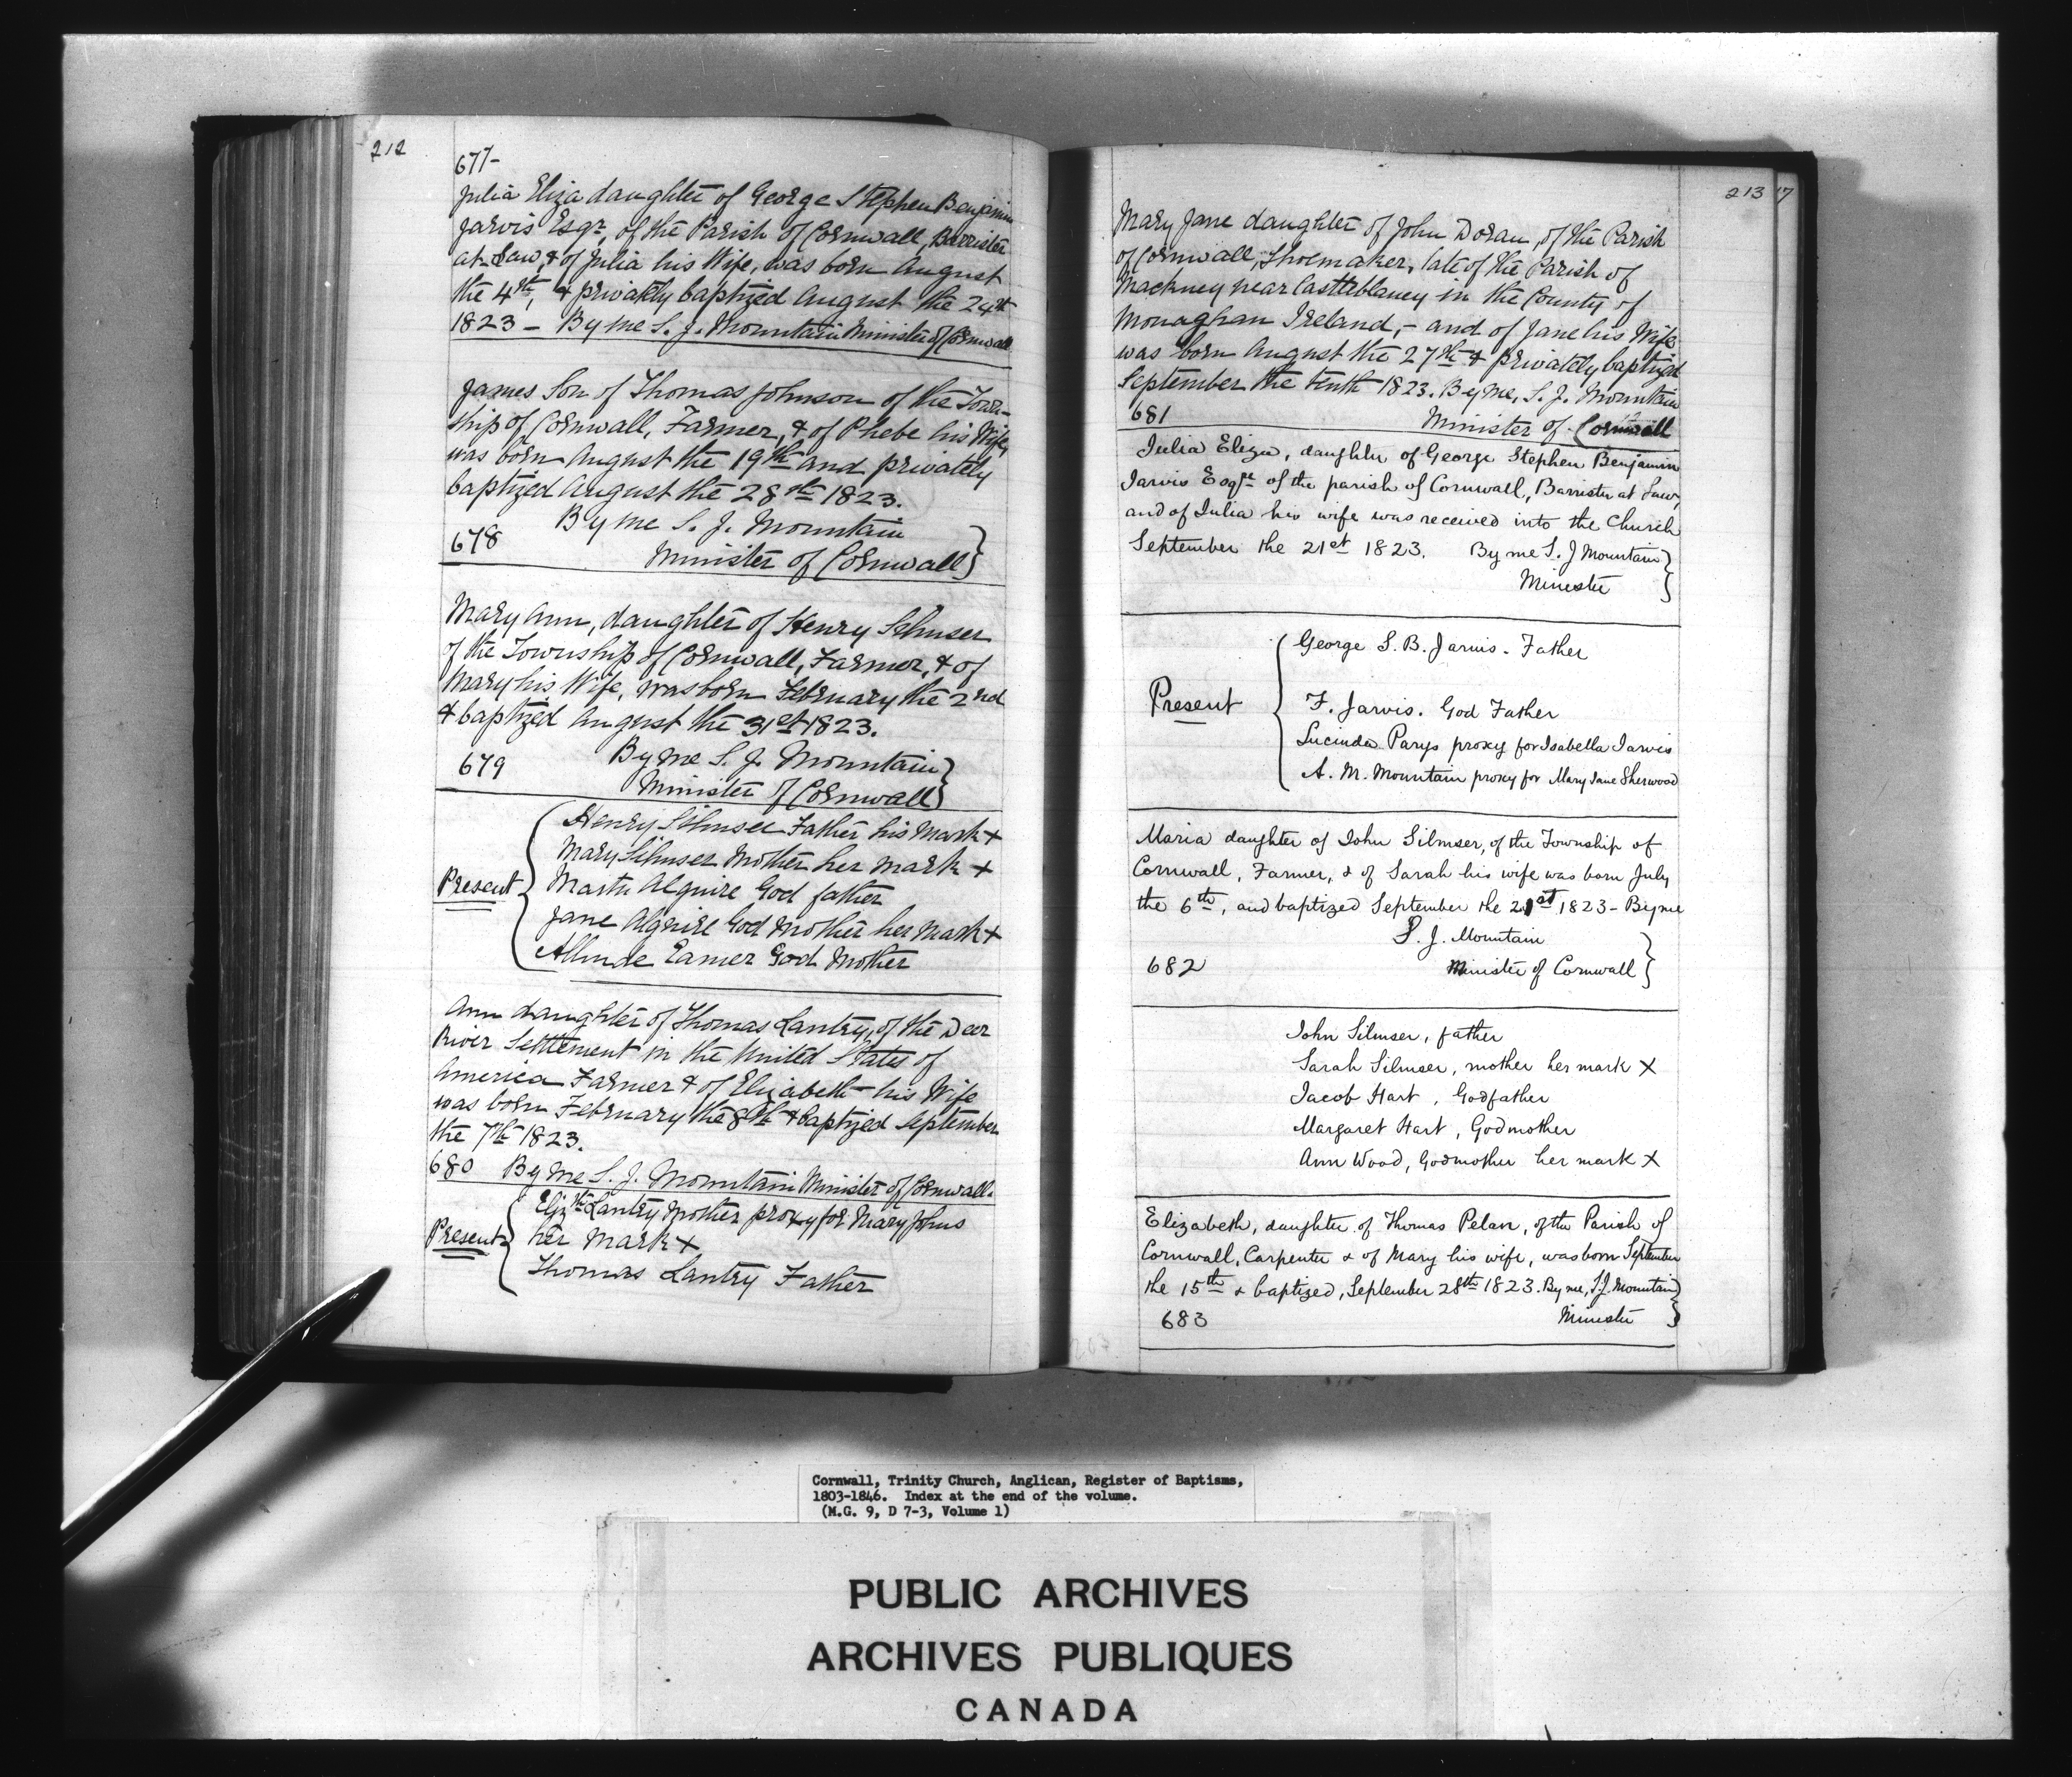 212
677
Julia Eliza daughter of George Stephen Benjamin
Jarvis Esqr, of the Parish of Cornwall, Barrister
at Law, & of Julia his Wife, was born August
the 4th, & privately baptized August the 24th
1823 - By me S. J. Mountain Minister of Cornwall
James Son of Thomas Johnson of the Town-
ship of Cornwall, Farmer, & of Phebe his Wife,
was born August the 19th and privately
baptized August the 28th 1823.
By me S. J. Mountain
678
Minister of Cornwall
Mary Ann, daughter of Henry Silmser
of the Township of Cornwall, Farmer, & of
Mary his Wife, was born February the 2nd
& baptized August the 31st 1823.
679 By me S. J. Mountain
Minister of Cornwall
Henry Silmser Father his mark +
Mary Silmser Mother her mark +
Present Martin Alguire God father
Jane Alguire God Mother her mark +
Eamer God Mother
Ann daughter of Thomas Lantry, of the Deer
River Settlement in the United States of
America Farmer & of Elizabeth his Wife
was born February the 8th & baptized September
the 7th 1823.
680 By me S. J. Mountain Minister of Cornwall.
Elizth Lantry Mother proxy for Mary Johns
Present her mark +
Thomas Lantry Father
213
Mary Jane daughter of John Doran, of the Parish
of Cornwall, Shoemaker, late of the Parish of
Mackney near Castleblaney in the County of
Monaghan Ireland, - and of Jane his Wife
was born August the 27th & privately baptized
September the tenth 1823. By me, S. J. Mountain
681 Minister of Cornwall
Julia Eliza, daughter of George Stephen Benjamin
Jarvis Esqre of the parish of Cornwall, Barrister at Law,
and of Julia his wife was received into the Church
September the 21st 1823. By me S. J Mountain
Minister
George S. B. Jarvis - Father
Present F. Jarvis. God Father
Lucinda Parys proxy for Isabella Jarvis
A. M. Mountain proxy for Mary Jane Sherwood
Maria daughter of John Silmser, of the Township of
Cornwall, Farmer, & of Sarah his wife was born July
the 6th, and baptized September the 21st 1823 - By me
S. J. Mountain
682 Minister of Cornwall
John Silmser, father
Sarah Silmser, mother her mark X
Jacob Hart, Godfather
Margaret Hart, Godmother
Ann Wood, Godmother her mark X
Elizabeth, daughter of Thomas Pelan, of the Parish of
Cornwall, Carpenter & of Mary his wife, was born September
the 15th & baptized, September 28th 1823. By me, S. J. Mountain
683 Minister
Cornwall, Trinity Church, Anglican, Register of Baptisms,
1803-1846. Index at the end of the volume.
(M.G. 9, D 7-3, Volume 1)
PUBLIC ARCHIVES
ARCHIVES PUBLIQUES
CANADA